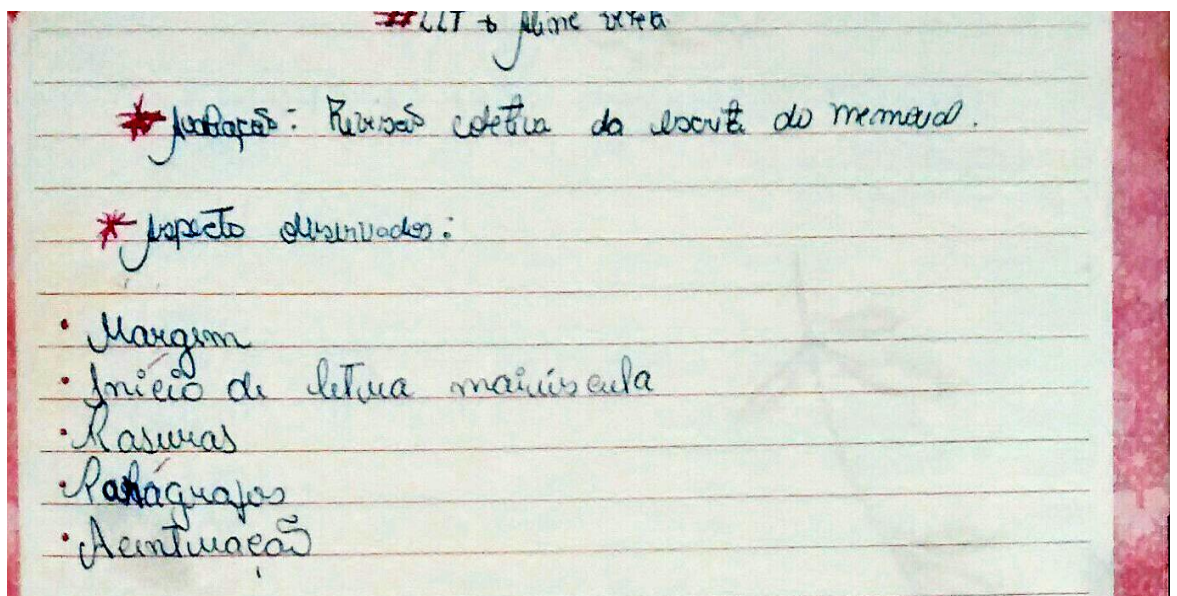 #LLT → Aline
* Avaliação: Revisão coletiva da escrita do memorial.
* Aspecto observados:
• Margem
• Início de letrua maiúscula
• Rasuras
• Parágrafos
• Acentuação